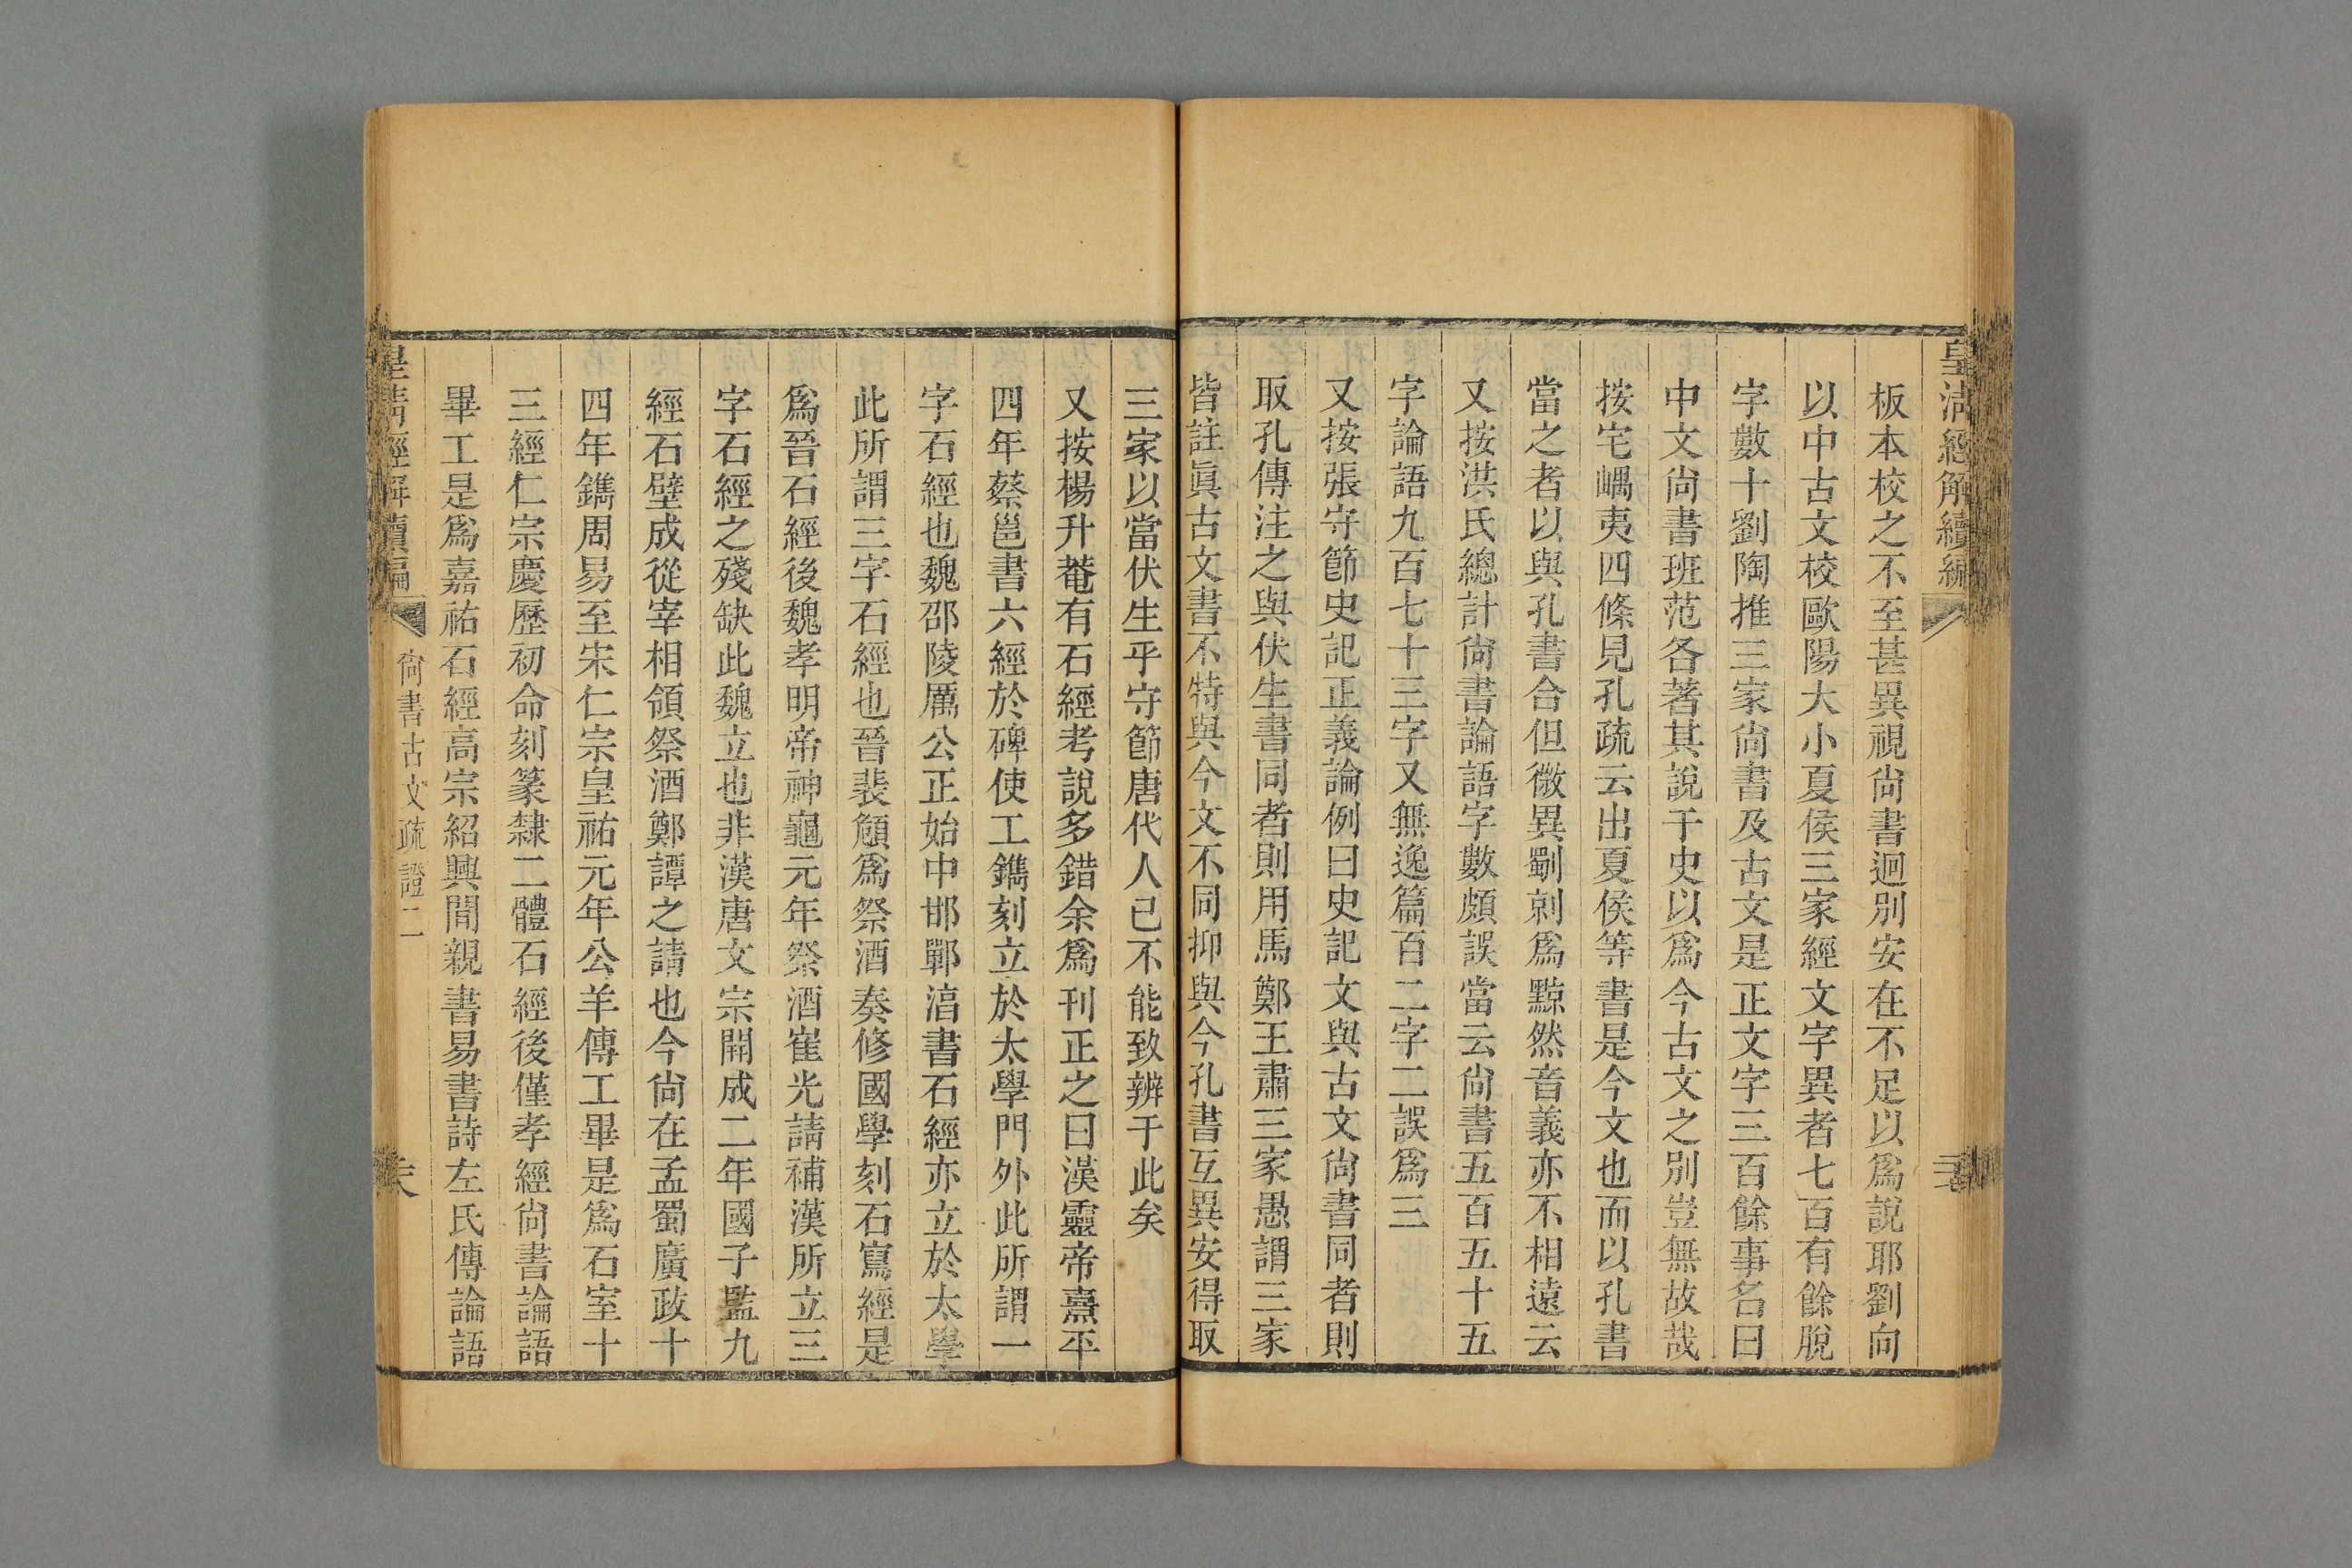 皇清經解續編
板本校之不至甚異視尙書迥別安在不足以爲說耶劉向
以中古文校歐陽大小夏侯三家經文字異者七百有餘脫
字數十劉陶推三家尙書及古文是正文字三百餘事名曰
中文尙書班范各著其說于史以爲今古文之別豈無故哉
按宅嵎夷四條見孔疏云出夏侯等書是今文也而以孔書
當之者以與孔書合但微異劅剠爲黥然音義亦不相遠云
又按洪氏總計尙書論語字數頗誤當云尙書五百五十五
字論語九百七十三字又無逸篇百二字二誤爲三
又按張守節史記正義論例曰史記文與古文尙書同者則
取孔傳注之與伏生書同者則用馬鄭王肅三家愚謂三家
皆註眞古文書不特與今文不同抑與今孔書互異安得取
三家以當伏生乎守節唐代人已不能致辨于此矣
又按楊升菴有石經考說多錯余爲刊正之曰漢靈帝熹平
四年蔡邕書六經於碑使工鐫刻立於太學門外此所謂一
字石經也魏邵陵厲公正始中邯鄲湻書石經亦立於太學
此所謂三字石經也晉裴頠爲祭酒奏修國學刻石寫經是
爲晉石經後魏孝明帝神龜元年祭酒崔光請補漢所立三
字石經之殘缺此魏立也非漢唐文宗開成二年國子監九
經石壁成從宰相領祭酒鄭譚之請也今尙在孟蜀廣政十
四年鐫周易至宋仁宗皇祐元年公羊傳工畢是爲石室十
三經仁宗慶歷初命刻篆隸二體石經後僅孝經尙書論語
畢工是爲嘉祐石經高宗紹興間親書易書詩左氏傳論語
皇清經解續編
尙書古文疏證二